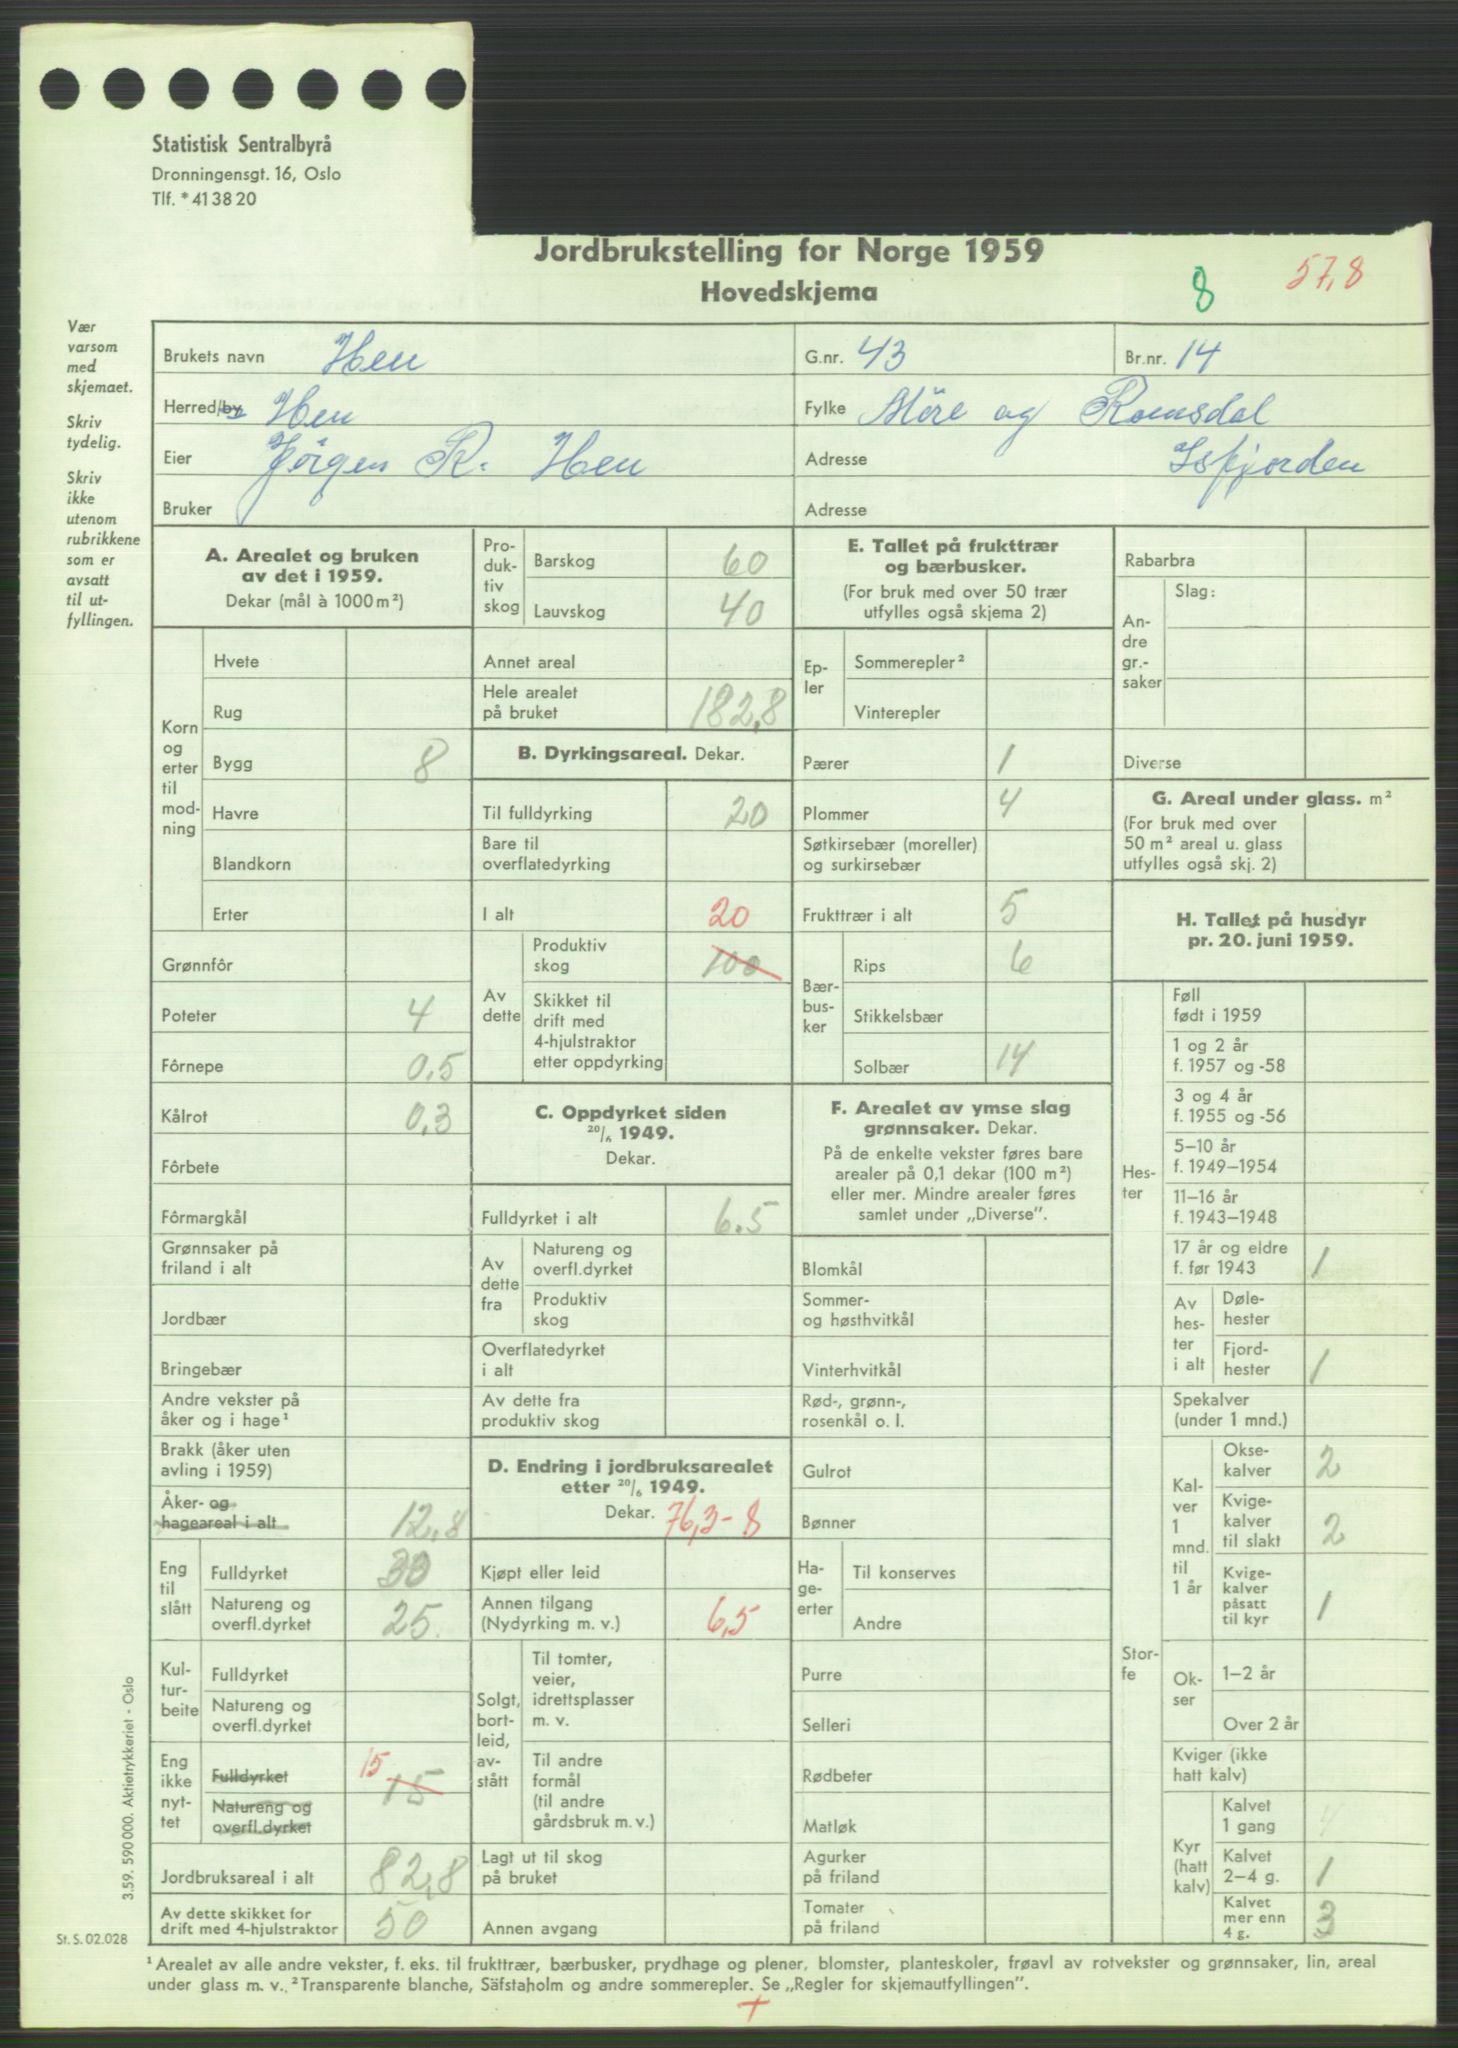 Statistisk Sentralbyrå
Dronningensgt. 16, Oslo
Tlf. * 41 38 20
Jordbrukstelling for Norge 1959
Hovedskjema
8
57,8
Vær
varsom
med
skjemaet.
Skriv
tydelig.
Skriv
ikke
utenom
rubrikkene
som er
avsatt
til ut-
fyllingen.
Brukets navn Hen G.nr. 43 Br.nr. 14
Herred/by Hen Fylke Möre og Romsdal
Eier Jörgen R. Hen Adresse Isfjorden
Bruker Adresse
A. Arealet og bruken
av det i 1959.
Dekar (mål à 1000 m²)
Korn
og
erter
til
mod-
ning
Hvete
Rug
Bygg 8
Havre
Blandkorn
Erter
Grønnfôr
Poteter 4
Fôrnepe 0,5
Kålrot 0,3
Fôrbete
Fôrmargkål
Grønnsaker på
friland i alt
Jordbær
Bringebær
Andre vekster på
åker og i hage¹
Brakk (åker uten
avling i 1959)
Åker- og
hageareal i alt 12,8
Eng
til
slått
Fulldyrket 30
Natureng og
overfl.dyrket 25
Kul-
tur-
beite
Fulldyrket
Natureng og
overfl.dyrket
Eng
ikke
nyt-
tet
Fulldyrket 15 15
Natureng og
overfl.dyrket
Jordbruksareal i alt 82,8
Av dette skikket for
drift med 4-hjulstraktor 50
Pro-
duk-
tiv
skog
Barskog 60
Lauvskog 40
Annet areal
Hele arealet
på bruket 182,8
B. Dyrkingsareal. Dekar.
Til fulldyrking 20
Bare til
overflatedyrking
I alt 20
Av
dette
Produktiv
skog 100
Skikket til
drift med
4-hjulstraktor
etter oppdyrking
C. Oppdyrket siden
20/6 1949.
Dekar.
Fulldyrket i alt 6.5
Av
dette
fra
Natureng og
overfl.dyrket
Produktiv
skog
Overflatedyrket
i alt
Av dette fra
produktiv skog
D. Endring i jordbruksarealet
etter 20/6 1949.
Dekar. 76,3-8
Kjøpt eller leid
Annen tilgang
(Nydyrking m. v.) 6,5
Solgt,
bort-
leid,
av-
stått
Til tomter,
veier,
idrettsplasser
m. v.
Til andre
formål
(til andre
gårdsbruk m. v.)
Lagt ut til skog
på bruket
Annen avgang
E. Tallet på frukttrær
og bærbusker.
(For bruk med over 50 trær
utfylles også skjema 2)
Ep-
ler
Sommerepler²
Vinterepler
Pærer 1
Plommer 4
Søtkirsebær (moreller)
og surkirsebær
Frukttrær i alt 5
Bær-
bus-
ker
Rips 6
Stikkelsbær
Solbær 14
F. Arealet av ymse slag
grønnsaker. Dekar.
På de enkelte vekster føres bare
arealer på 0,1 dekar (100 m²)
eller mer. Mindre arealer føres
samlet under „Diverse”.
Blomkål
Sommer-
og høsthvitkål
Vinterhvitkål
Rød-, grønn-,
rosenkål o. l.
Gulrot
Bønner
Ha-
ge-
erter
Til konserves
Andre
Purre
Selleri
Rødbeter
Matløk
Agurker
på friland
Tomater
på friland
Rabarbra
An-
dre
gr.-
saker
Slag:
Diverse
G. Areal under glass. m²
(For bruk med over
50 m² areal u. glass
utfylles også skj. 2)
H. Tallet på husdyr
pr. 20. juni 1959.
Hes-
ter
Føll
født i 1959
1 og 2 år
f. 1957 og -58
3 og 4 år
f. 1955 og -56
5–10 år
f. 1949–1954
11–16 år
f. 1943–1948
17 år og eldre
f. før 1943 1
Av
hes-
ter
i alt
Døle-
hester
Fjord-
hester 1
Stor-
fe
Spekalver
(under 1 mnd.)
Kal-
ver
1
mnd.
til
1 år
Okse-
kalver 2
Kvige-
kalver
til slakt 2
Kvige-
kalver
påsatt
til kyr 1
Ok-
ser
1–2 år
Over 2 år
Kviger (ikke
hatt kalv)
Kyr
(hatt
kalv)
Kalvet
1 gang
Kalvet
2–4 g. 1
Kalvet
mer enn
4 g. 3
3.59. 590 000. Aktietrykkeriet - Oslo
St. S. 02.028
¹ Arealet av alle andre vekster, f. eks. til frukttrær, bærbusker, prydhage og plener, blomster, planteskoler, frøavl av rotvekster og grønnsaker, lin, areal
under glass m. v. ² Transparente blanche, Säfstaholm og andre sommerepler. Se „Regler for skjemautfyllingen”.
+